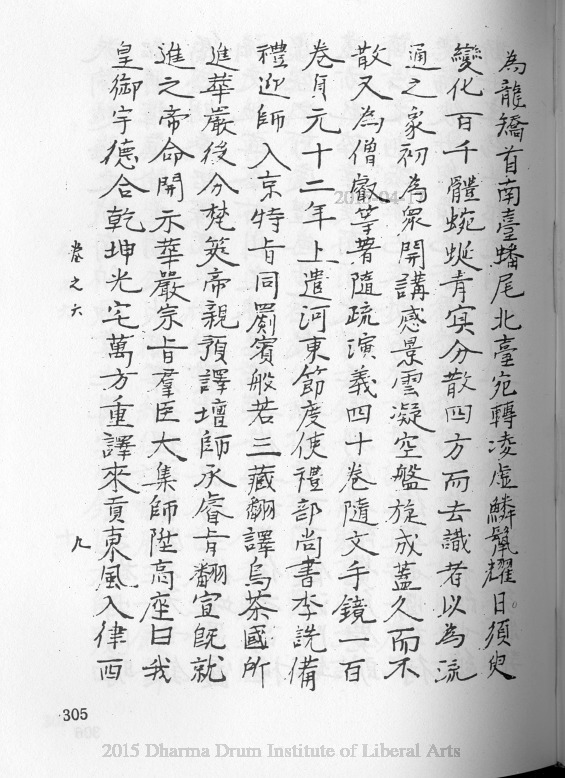 為龍矯首南臺蟠尾北臺宛轉凌虛鱗鬣耀日。須臾
變化百千體蜿蜒青冥分散四方而去識者以為流
通之象初為眾開講感景雲凝空盤旋成蓋久而不
散又為僧叡等著隨疏演義四十卷隨文手鏡一百
卷貞元十二年上遣河東節度使禮部尚書李詵備
禮迎師入京特旨同罽賓般若三藏翻譯烏茶國所
進華嚴後分梵筴帝親預譯壇師承睿旨翻宣既就
進之帝命開示華嚴宗旨羣臣大集師陞高座曰我
皇御宇德合乾坤光宅萬方重譯來貢東風入律西
卷之六
九
305
2015 Dharma Drum Institute of Liberal Arts